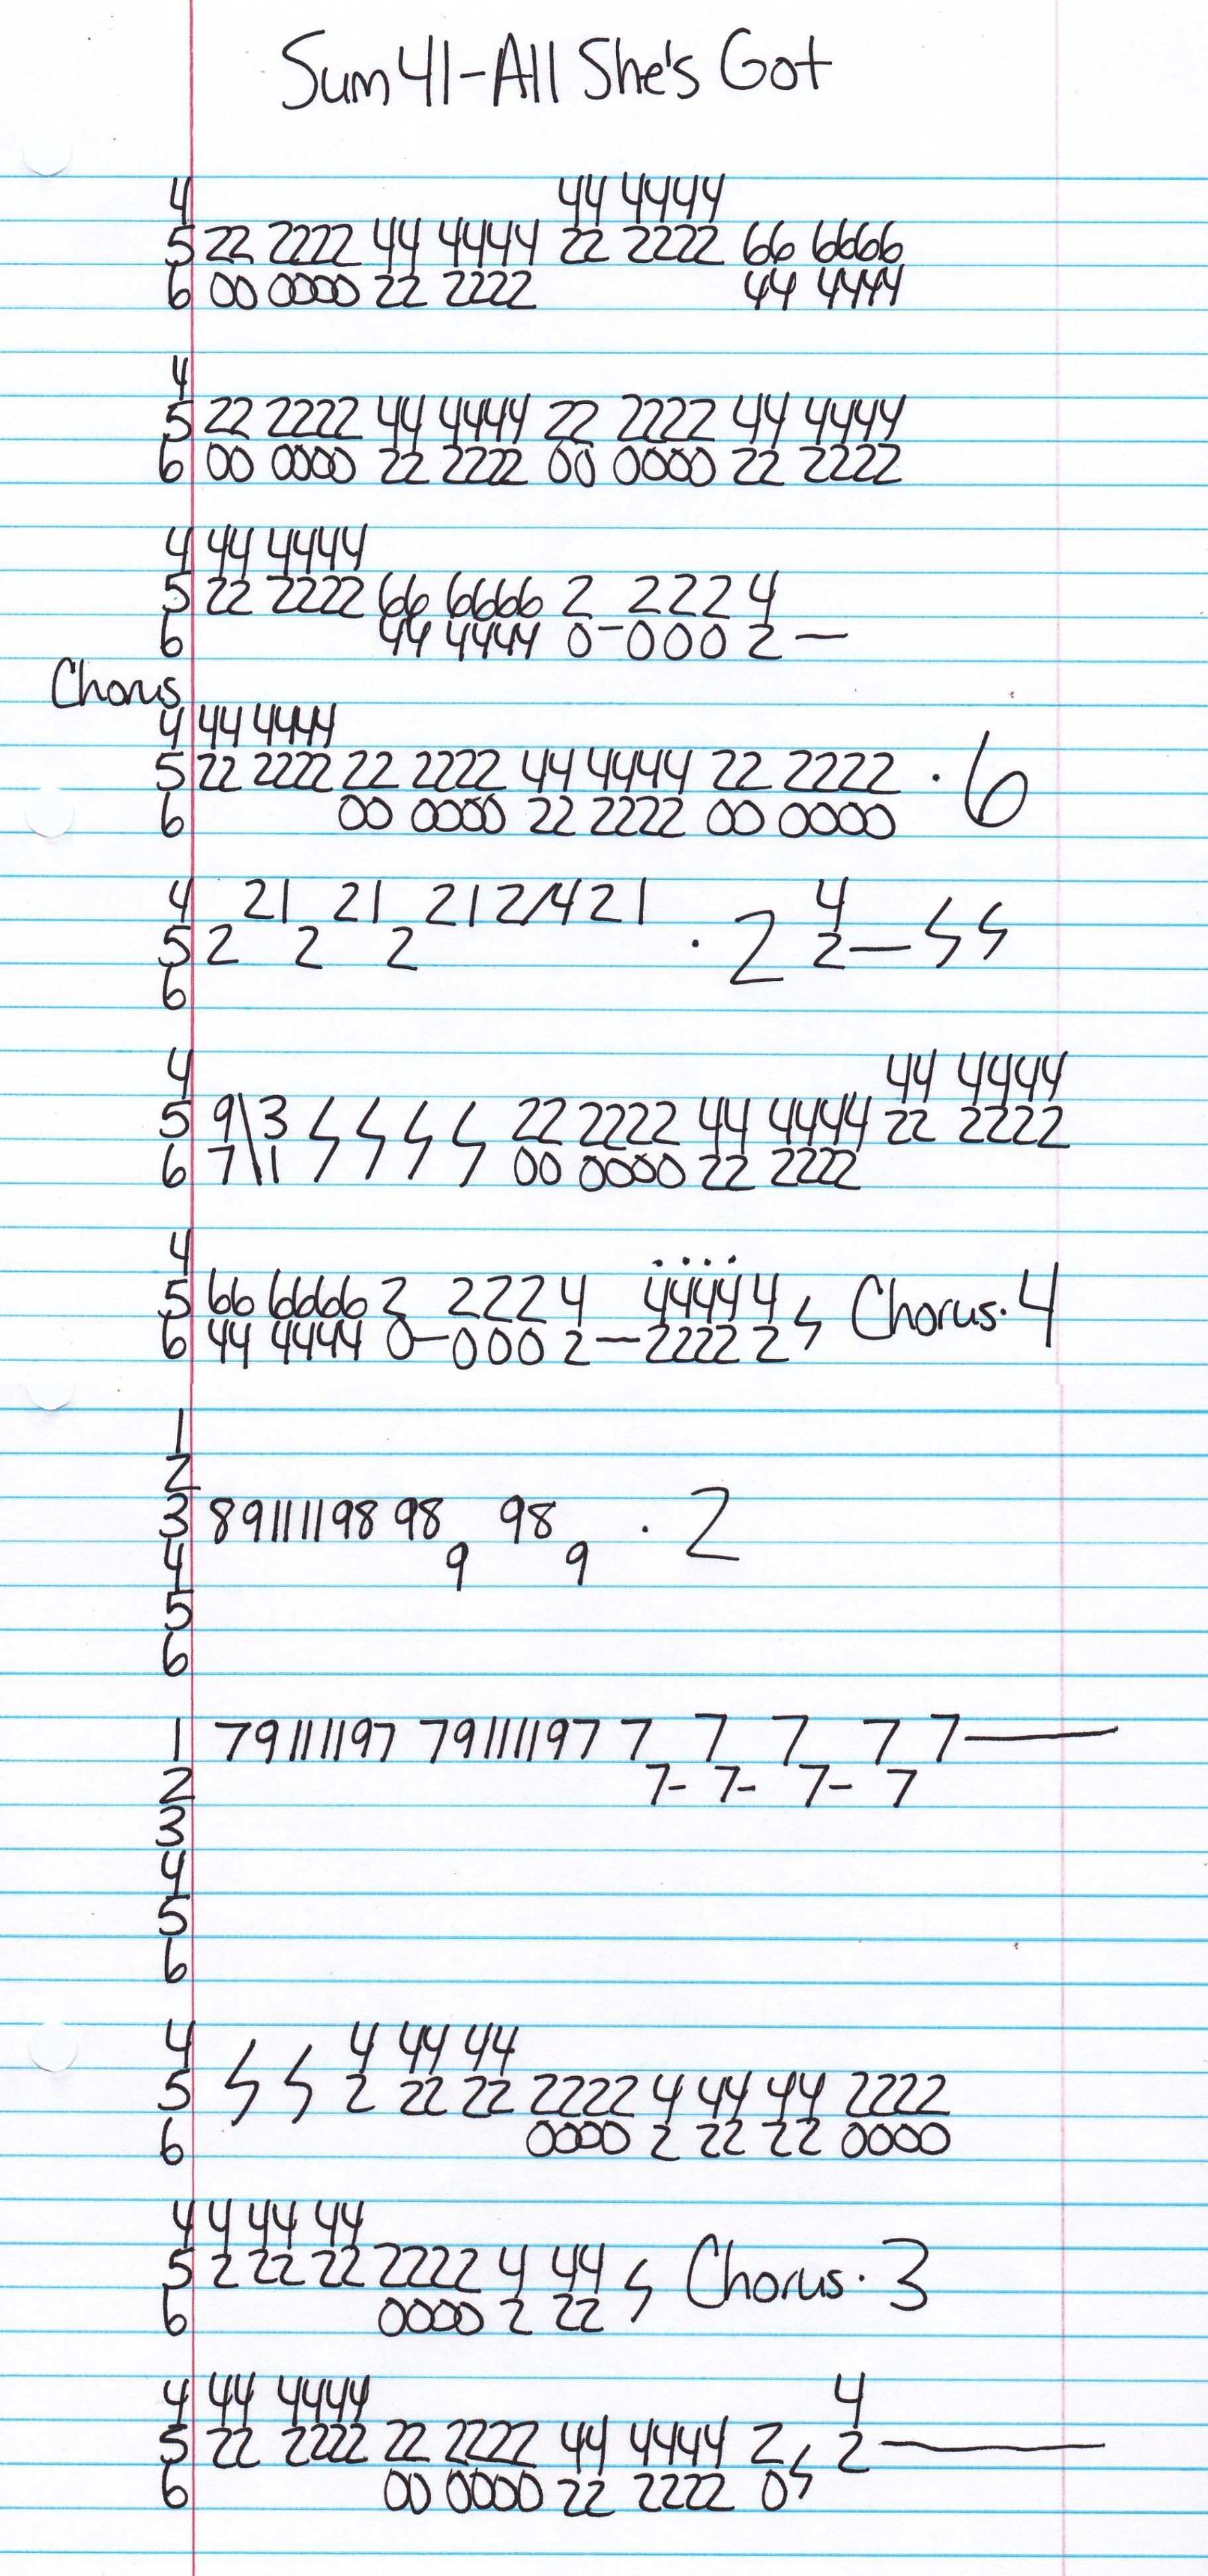 Sum 41-All She's Got
4 44 4444
5 22 2222 44 4444 22 2222 66 6666
6 00 0000 22 2222 44 4444
4
5 22 2222 44 4444 22 2222 44 4444
6 00 0000 22 2222 00 0000 22 2222
4 44 4444
5 22 2222 66 6666 2 222 4
6 44 4444 0-000 2 —
Chorus
4 44 4444
5 22 2222 22 2222 44 4444 22 2222 · 6
6 00 0000 22 2222 00 0000
4 21 21 212/421 4
5 2 2 2 · 2 2—
6
4 44 4444
5 9\3 22 2222 44 4444 22 2222
6 7\1 00 0000 22 2222
4
5 66 6666 2 222 4 4444 4 Chorus·4
6 44 4444 0—000 2—2222 2
1
2
3 89111198 98 98 · 2
4 9 9
5
6
1 79111197 79111197 7 7 7 7 7—
2 7- 7- 7- 7
3
4
5
6
4 4 44 44
5 2 22 22 2222 4 44 44 2222
6 0000 2 22 22 0000
4 4 44 44
5 2 22 22 2222 4 44 Chorus·3
6 0000 2 22
4 44 4444 4
5 22 2222 22 2222 44 4444 2 2—
6 00 0000 22 2222 0